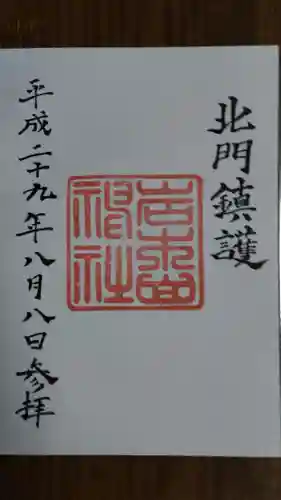 北門鎮護
平成二十九年八月八日参拝